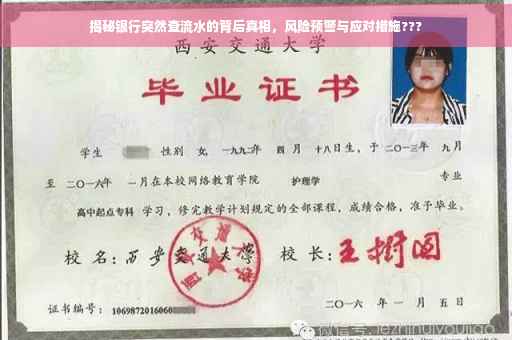 揭秘银行突然查流水的背后真相，风险预警与应对措施???
西安交通大学
毕业证书
学生 性别 女，一九九二年 四月 十八日生，于 二〇一三年 九月
至 二〇一六年 一月在本校网络教育学院 护理学 专业
高中起点专科 学习，修完教学计划规定的全部课程，成绩合格，准予毕业。
校名：西安交通大学 校长：王树国
证书编号：1069872016060
二〇一六年 一月 五日
微信号: jiezhihuiyoujiao